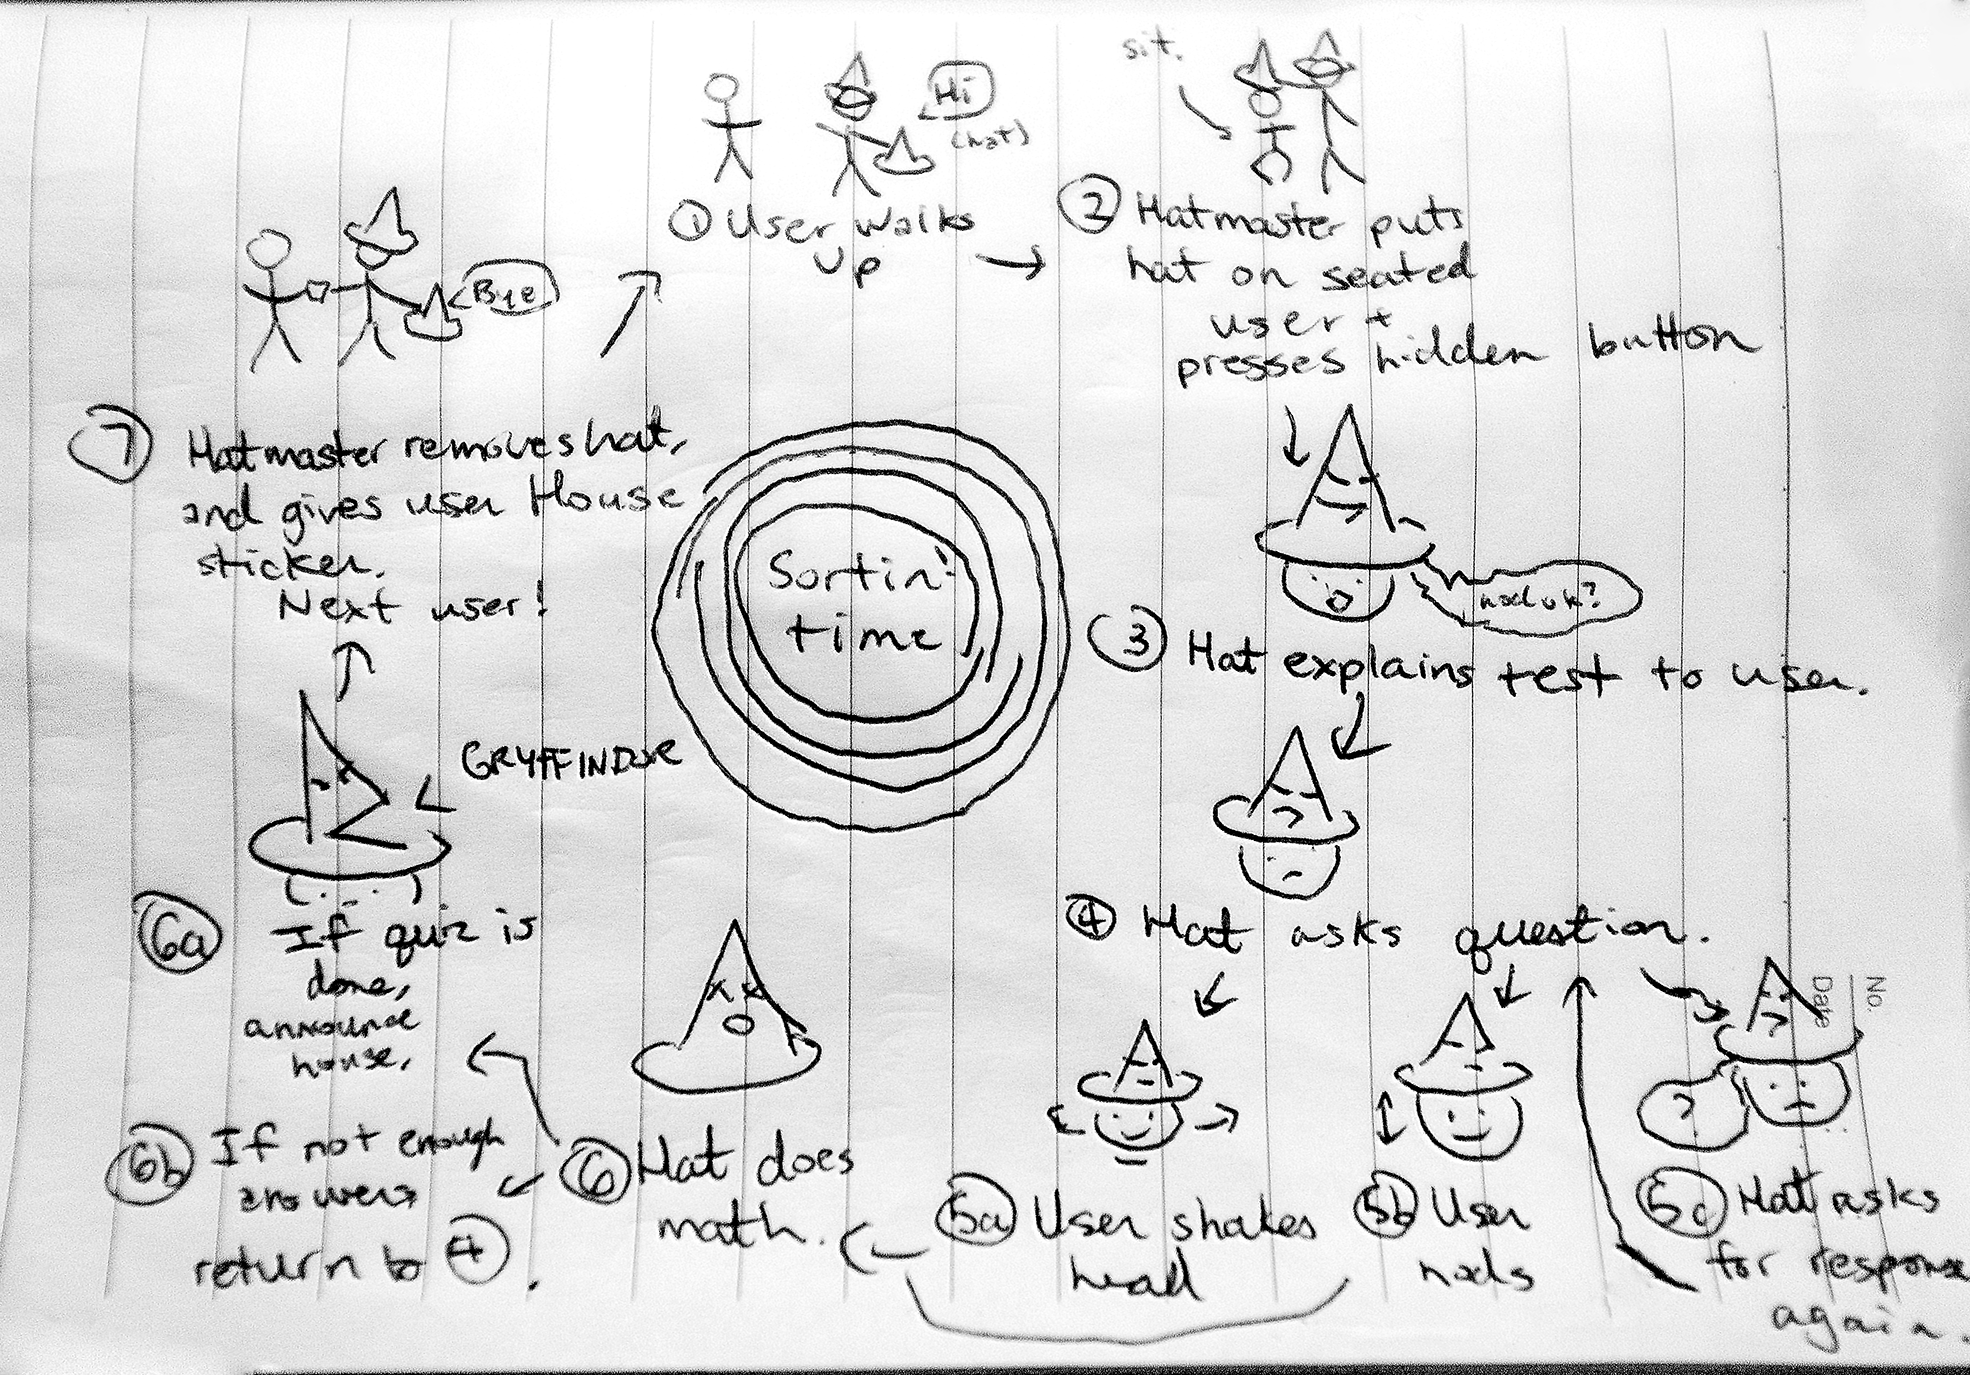 Hi
(hat)
① User walks
up
sit.
② Hatmaster puts
hat on seated
user +
presses hidden button
nod ok?
③ Hat explains test to user.
④ Hat asks question.
No.
Date
5a User shakes
head
5b User
nods
?
5c Hat asks
for response
again.
⑥ Hat does
math.
6a If quiz is
done,
announce
house.
6b If not enough
answers
return to ④.
GRYFFINDOR
⑦ Hatmaster removes hat,
and gives user House
sticker.
Next user!
Bye
Sortin'
time